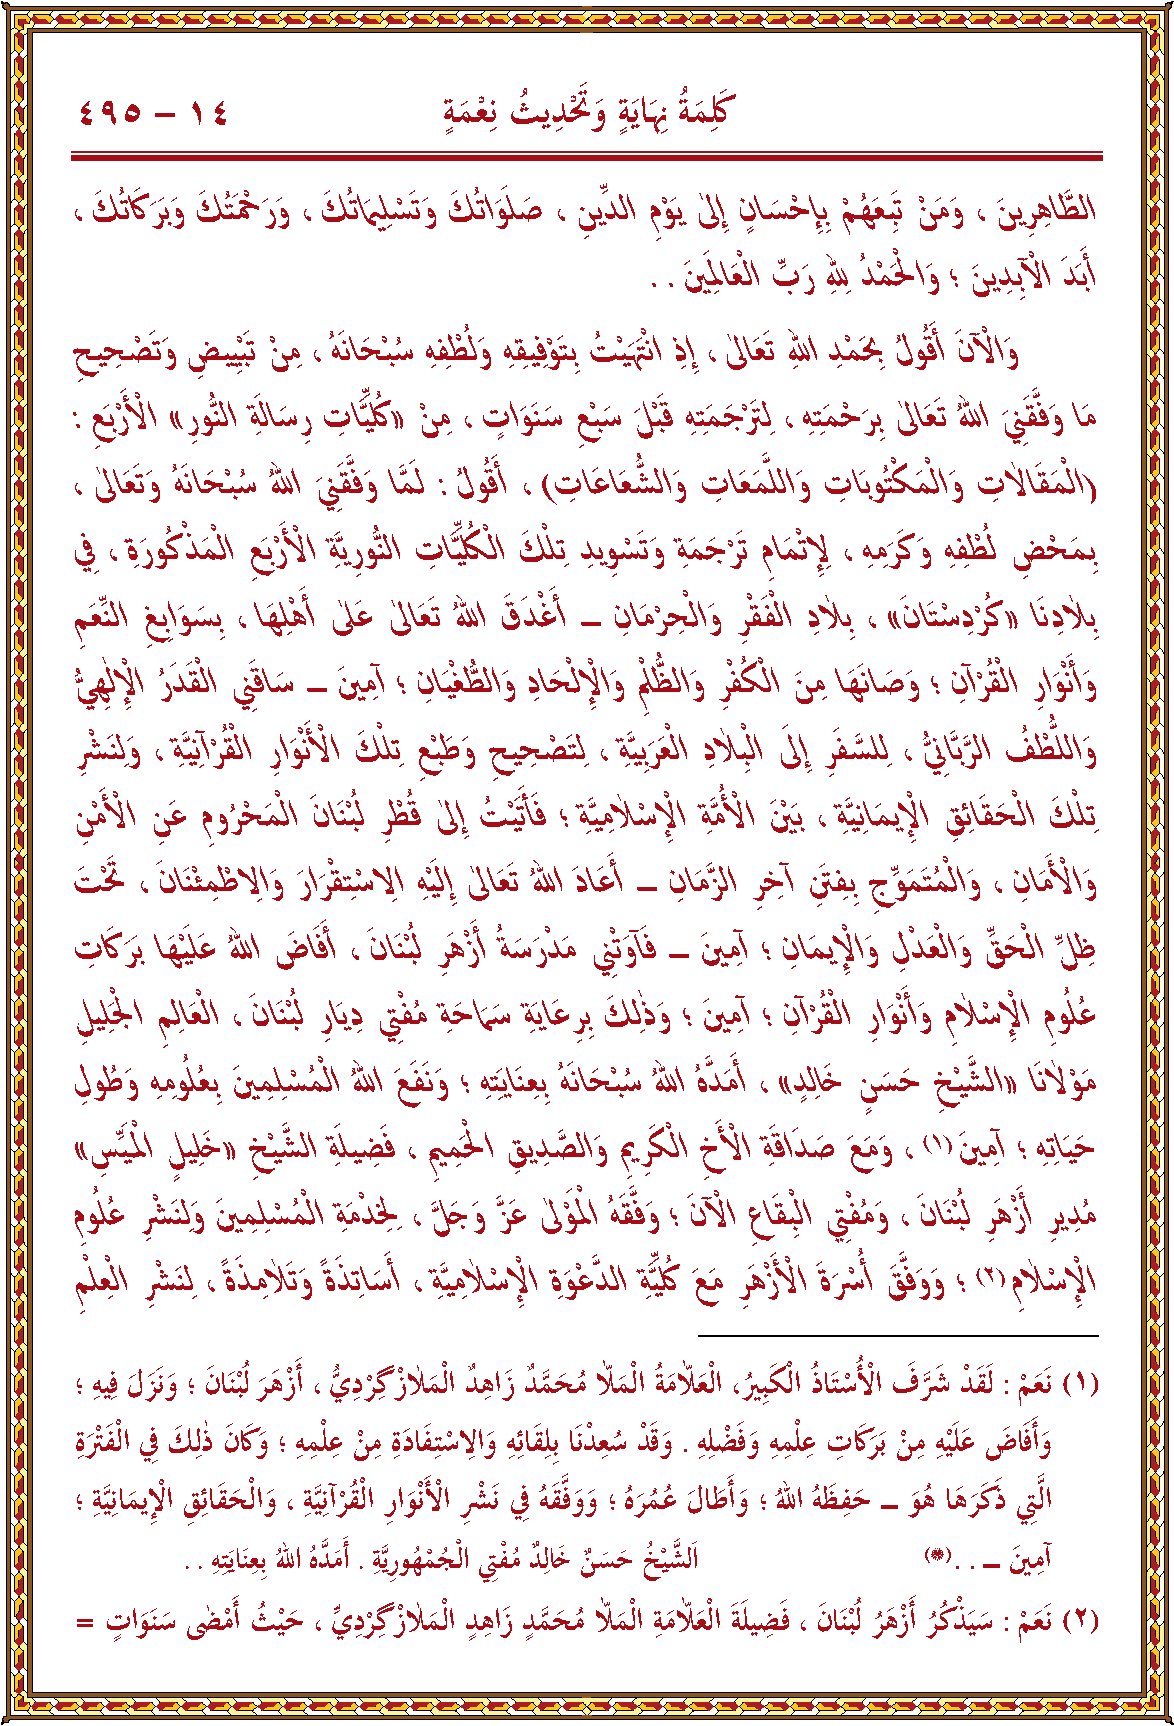 كَلِمَةُ نِهَايَةٍ وَتَحْدِيثُ نِعْمَةٍ ١٤ – ٤٩٥
الطَّاهِرِينَ ، وَمَنْ تَبِعَهُمْ بِإِحْسَانٍ إِلىٰ يَوْمِ الدِّينِ ، صَلَوَاتُكَ وَتَسْلِيمَاتُكَ ، وَرَحْمَتُكَ وَبَرَكَاتُكَ ،
أَبَدَ الْآبِدِينَ ؛ وَالْحَمْدُ لِلهِ رَبِّ الْعَالَمِينَ . .
وَالْآنَ أَقُولُ بِحَمْدِ اللهِ تَعَالىٰ ، إِذِ انْتَهَيْتُ بِتَوْفِيقِهِ وَلُطْفِهِ سُبْحَانَهُ ، مِنْ تَبْيِيضِ وَتَصْحِيحِ
مَا وَفَّقَنِيَ اللهُ تَعَالىٰ بِرَحْمَتِهِ ، لِتَرْجَمَتِهِ قَبْلَ سَبْعِ سَنَوَاتٍ ، مِنْ «كُلِّيَّاتِ رِسَالَةِ النُّورِ» الْأَرْبَعِ :
(الْمَقَالَاتِ وَالْمَكْتُوبَاتِ وَاللَّمَعَاتِ وَالشُّعَاعَاتِ) ، أَقُولُ : لَمَّا وَفَّقَنِيَ اللهُ سُبْحَانَهُ وَتَعَالىٰ ،
بِمَحْضِ لُطْفِهِ وَكَرَمِهِ ، لِإِتْمَامِ تَرْجَمَةِ وَتَسْوِيدِ تِلْكَ الْكُلِّيَّاتِ النُّورِيَّةِ الْأَرْبَعِ الْمَذْكُورَةِ ، فِي
بِلَادِنَا «كُرْدِسْتَانَ» ، بِلَادِ الْفَقْرِ وَالْحِرْمَانِ – أَغْدَقَ اللهُ تَعَالىٰ عَلىٰ أَهْلِهَا ، بِسَوَابِغِ النِّعَمِ
وَأَنْوَارِ الْقُرْآنِ ؛ وَصَانَهَا مِنَ الْكُفْرِ وَالظُّلْمِ وَالْإِلْحَادِ وَالطُّغْيَانِ ؛ آمِينَ – سَاقَنِي الْقَدَرُ الْإِلٰهِيُّ
وَاللُّطْفُ الرَّبَّانِيُّ ، لِلسَّفَرِ إِلَى الْبِلَادِ الْعَرَبِيَّةِ ، لِتَصْحِيحِ وَطَبْعِ تِلْكَ الْأَنْوَارِ الْقُرْآنِيَّةِ ، وَلِنَشْرِ
تِلْكَ الْحَقَائِقِ الْإِيمَانِيَّةِ ، بَيْنَ الْأُمَّةِ الْإِسْلَامِيَّةِ ؛ فَأَتَيْتُ إِلىٰ قُطْرِ لُبْنَانَ الْمَحْرُومِ عَنِ الْأَمْنِ
وَالْأَمَانِ ، وَالْمُتَمَوِّجِ بِفِتَنِ آخِرِ الزَّمَانِ – أَعَادَ اللهُ تَعَالىٰ إِلَيْهِ الِاسْتِقْرَارَ وَالِاطْمِئْنَانَ ، تَحْتَ
ظِلِّ الْحَقِّ وَالْعَدْلِ وَالْإِيمَانِ ؛ آمِينَ – فَآوَتْنِي مَدْرَسَةُ أَزْهَرِ لُبْنَانَ ، أَفَاضَ اللهُ عَلَيْهَا بَرَكَاتِ
عُلُومِ الْإِسْلَامِ وَأَنْوَارِ الْقُرْآنِ ؛ آمِينَ ؛ وَذٰلِكَ بِرِعَايَةِ سَمَاحَةِ مُفْتِي دِيَارِ لُبْنَانَ ، الْعَالِمِ الْجَلِيلِ
مَوْلَانَا «الشَّيْخِ حَسَنٍ خَالِدٍ» ، أَمَدَّهُ اللهُ سُبْحَانَهُ بِعِنَايَتِهِ ؛ وَنَفَعَ اللهُ الْمُسْلِمِينَ بِعُلُومِهِ وَطُولِ
حَيَاتِهِ ؛ آمِينَ (١) ، وَمَعَ صَدَاقَةِ الْأَخِ الْكَرِيمِ وَالصَّدِيقِ الْحَمِيمِ ، فَضِيلَةِ الشَّيْخِ «خَلِيلٍ الْمَيِّسِ»
مُدِيرِ أَزْهَرِ لُبْنَانَ ، وَمُفْتِي الْبِقَاعِ الْآنَ ؛ وَفَّقَهُ الْمَوْلىٰ عَزَّ وَجَلَّ ، لِخِدْمَةِ الْمُسْلِمِينَ وَلِنَشْرِ عُلُومِ
الْإِسْلَامِ (٢) ؛ وَوَفَّقَ أُسْرَةَ الْأَزْهَرِ مَعَ كُلِّيَّةِ الدَّعْوَةِ الْإِسْلَامِيَّةِ ، أَسَاتِذَةً وَتَلَامِذَةً ، لِنَشْرِ الْعِلْمِ
(١) نَعَمْ : لَقَدْ شَرَّفَ الْأُسْتَاذُ الْكَبِيرُ، الْعَلَّامَةُ الْمَلَّا مُحَمَّدٌ زَاهِدٌ الْمَلَازْگِرْدِيُّ ، أَزْهَرَ لُبْنَانَ ؛ وَنَزَلَ فِيهِ ؛
وَأَفَاضَ عَلَيْهِ مِنْ بَرَكَاتِ عِلْمِهِ وَفَضْلِهِ . وَقَدْ سُعِدْنَا بِلِقَائِهِ وَالِاسْتِفَادَةِ مِنْ عِلْمِهِ ؛ وَكَانَ ذٰلِكَ فِي الْفَتْرَةِ
الَّتِي ذَكَرَهَا هُوَ – حَفِظَهُ اللهُ ؛ وَأَطَالَ عُمُرَهُ ؛ وَوَفَّقَهُ فِي نَشْرِ الْأَنْوَارِ الْقُرْآنِيَّةِ ، وَالْحَقَائِقِ الْإِيمَانِيَّةِ ؛
آمِينَ – . . (*) اَلشَّيْخُ حَسَنٌ خَالِدٌ مُفْتِي الْجُمْهُورِيَّةِ . أَمَدَّهُ اللهُ بِعِنَايَتِهِ . .
(٢) نَعَمْ : سَيَذْكُرُ أَزْهَرُ لُبْنَانَ ، فَضِيلَةَ الْعَلَّامَةِ الْمَلَّا مُحَمَّدٍ زَاهِدٍ الْمَلَازْگِرْدِيِّ ، حَيْثُ أَمْضىٰ سَنَوَاتٍ =